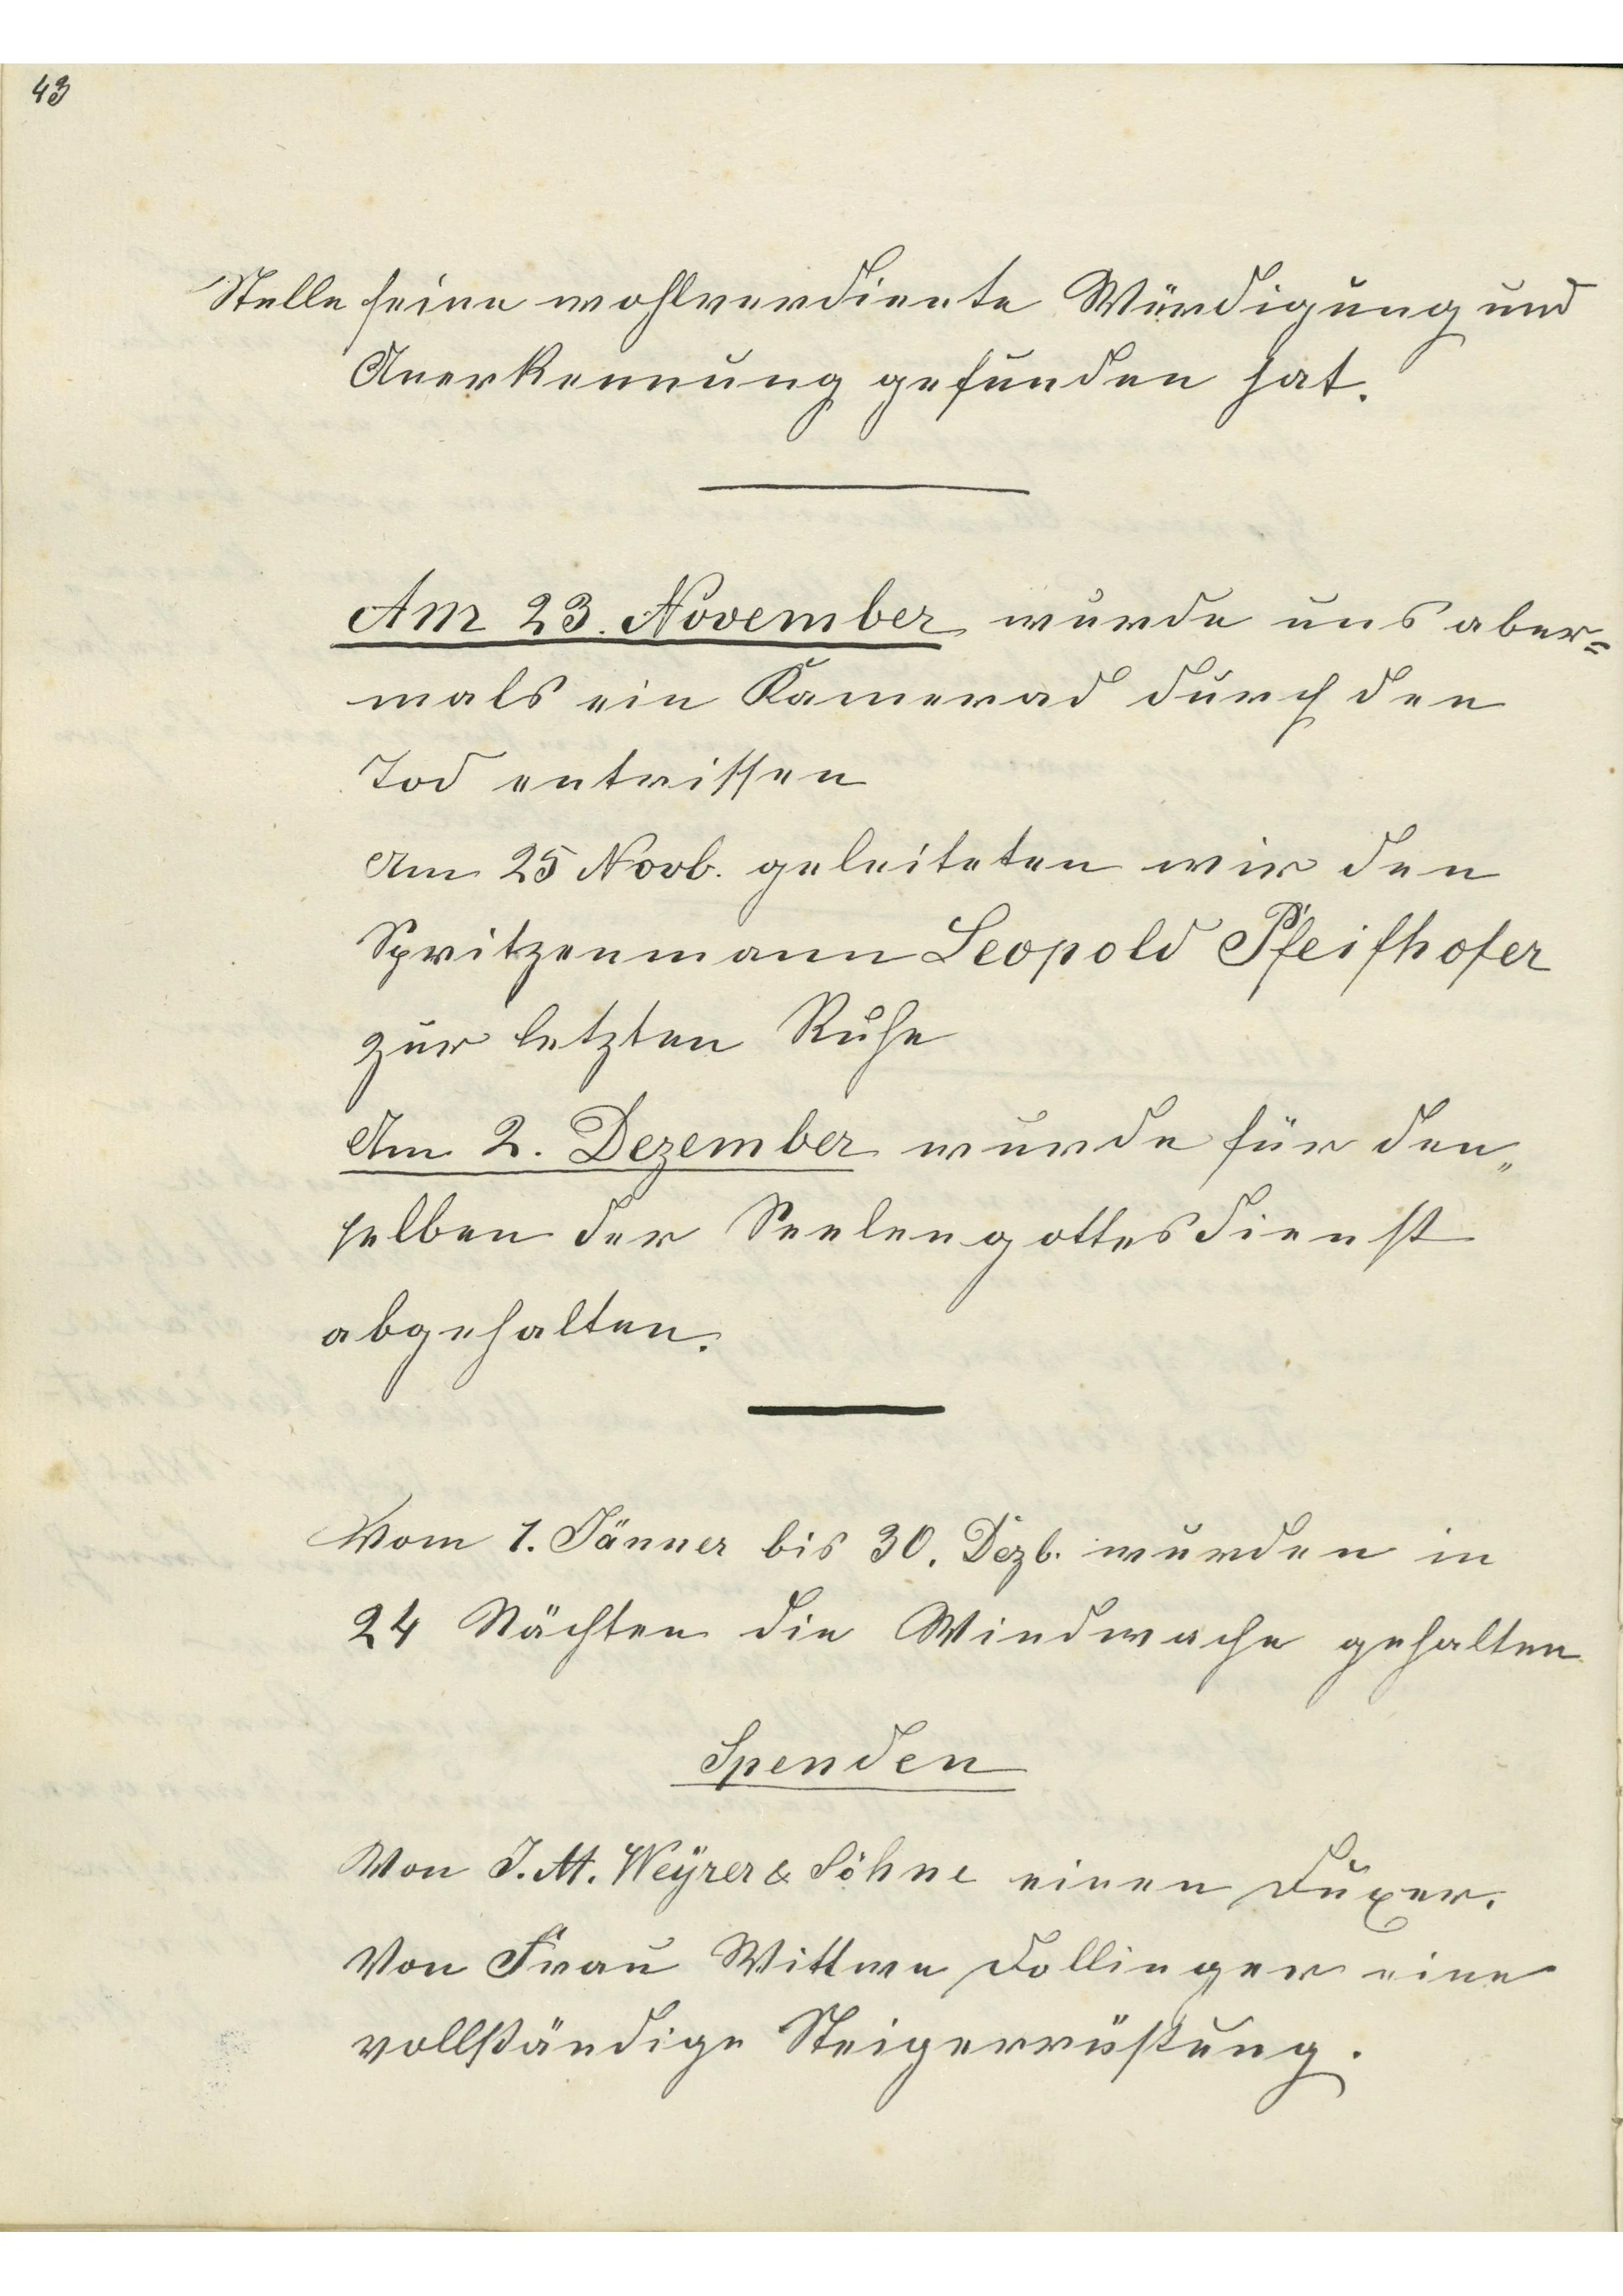 43
Stelle seine wohlverdiente Würdigung und
Anerkennung gefunden hat.
Am 23. November wurde uns aber=
mals ein Kamerad durch den
Tod entrissen
Am 25 Novb. geleiteten wir den
Spritzenmann Leopold Pfeifhofer
zur letzten Ruhe
Am 2. Dezember wurde für den„
selben der Seelengottesdienst
abgehalten.
Vom 1. Jänner bis 30. Dezb. wurden in
24 Nächten die Windwache gehalten
Spenden
Von J. M. Weÿrer & Söhne einen Duxer.
Von Frau Wittwe Dollinger eine
vollständige Steigerrüstung.